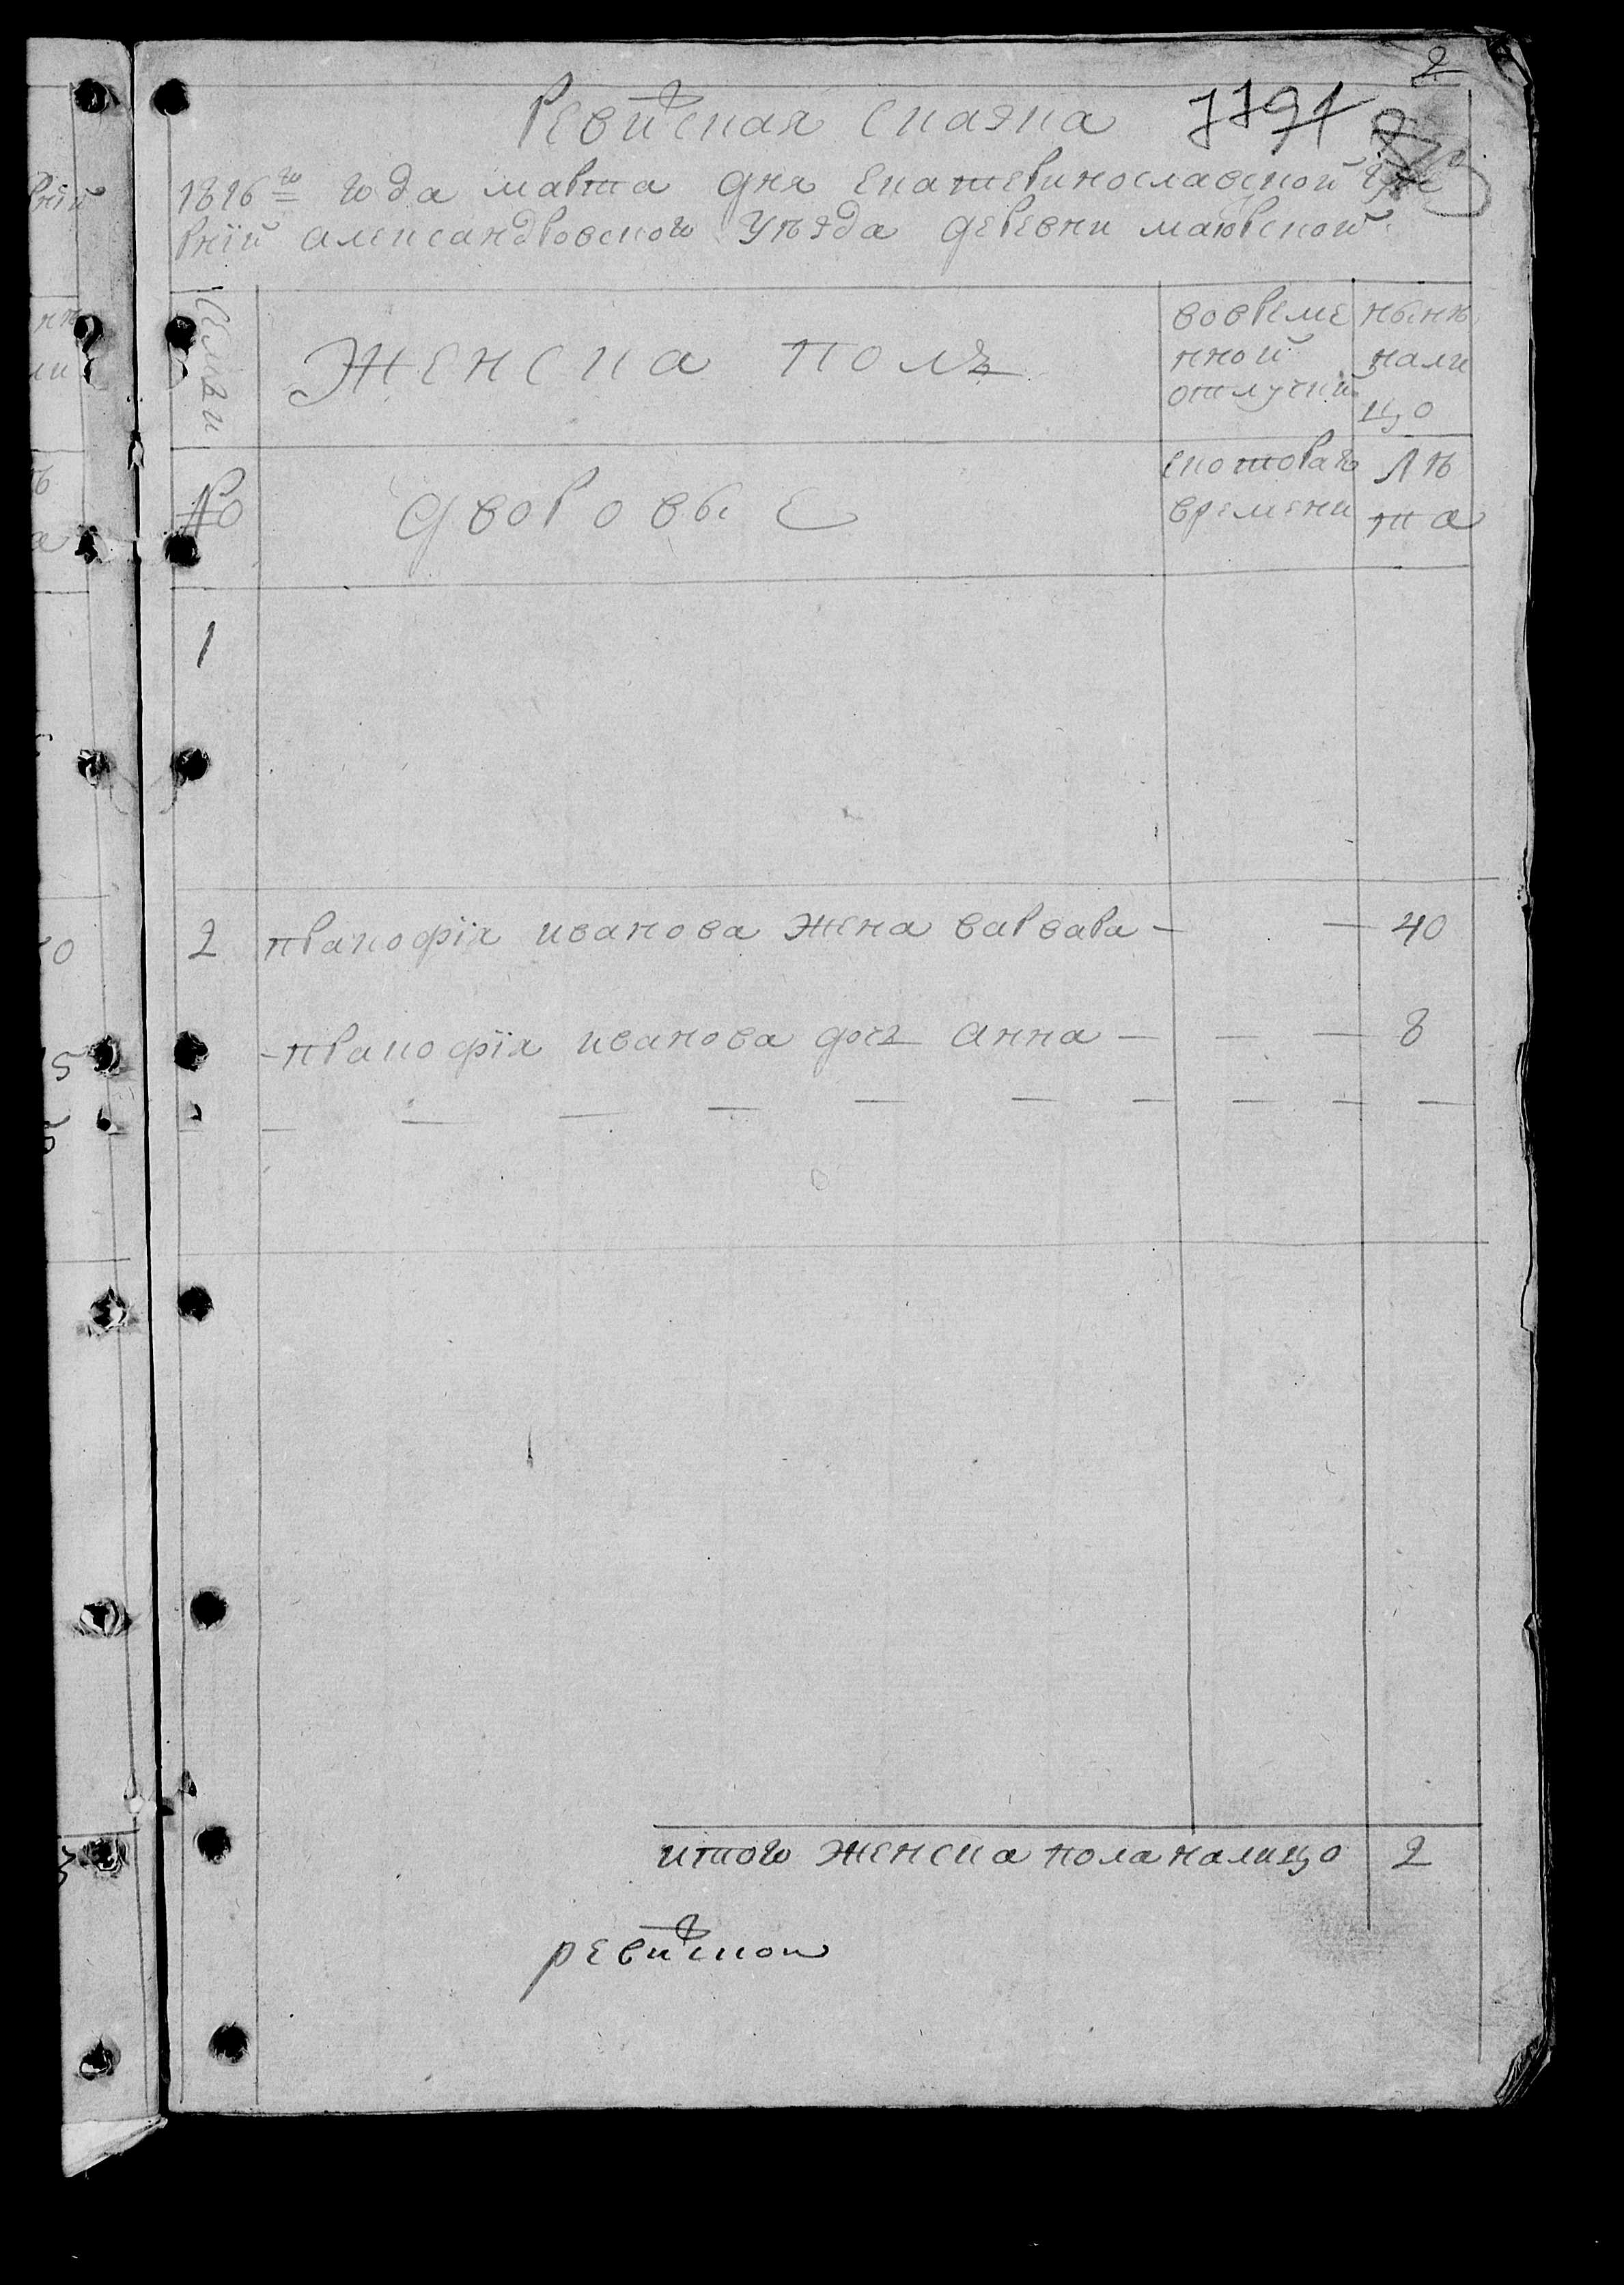 2
Ревиская скаяка 7791
1816го года марта дня екатеринославской губе
рнїй александровского уѣзда деревни маюрской
Семьи Женска полъ вовреме нной отлучки нынѣ нали цо
№ дворовые скоторагo времени лѣ та
1
2 пракофія иванова жена варвара — — 40
— пракофїя иванова дочъ анна — — — 8
итого женска пола налицо 2
ревиской